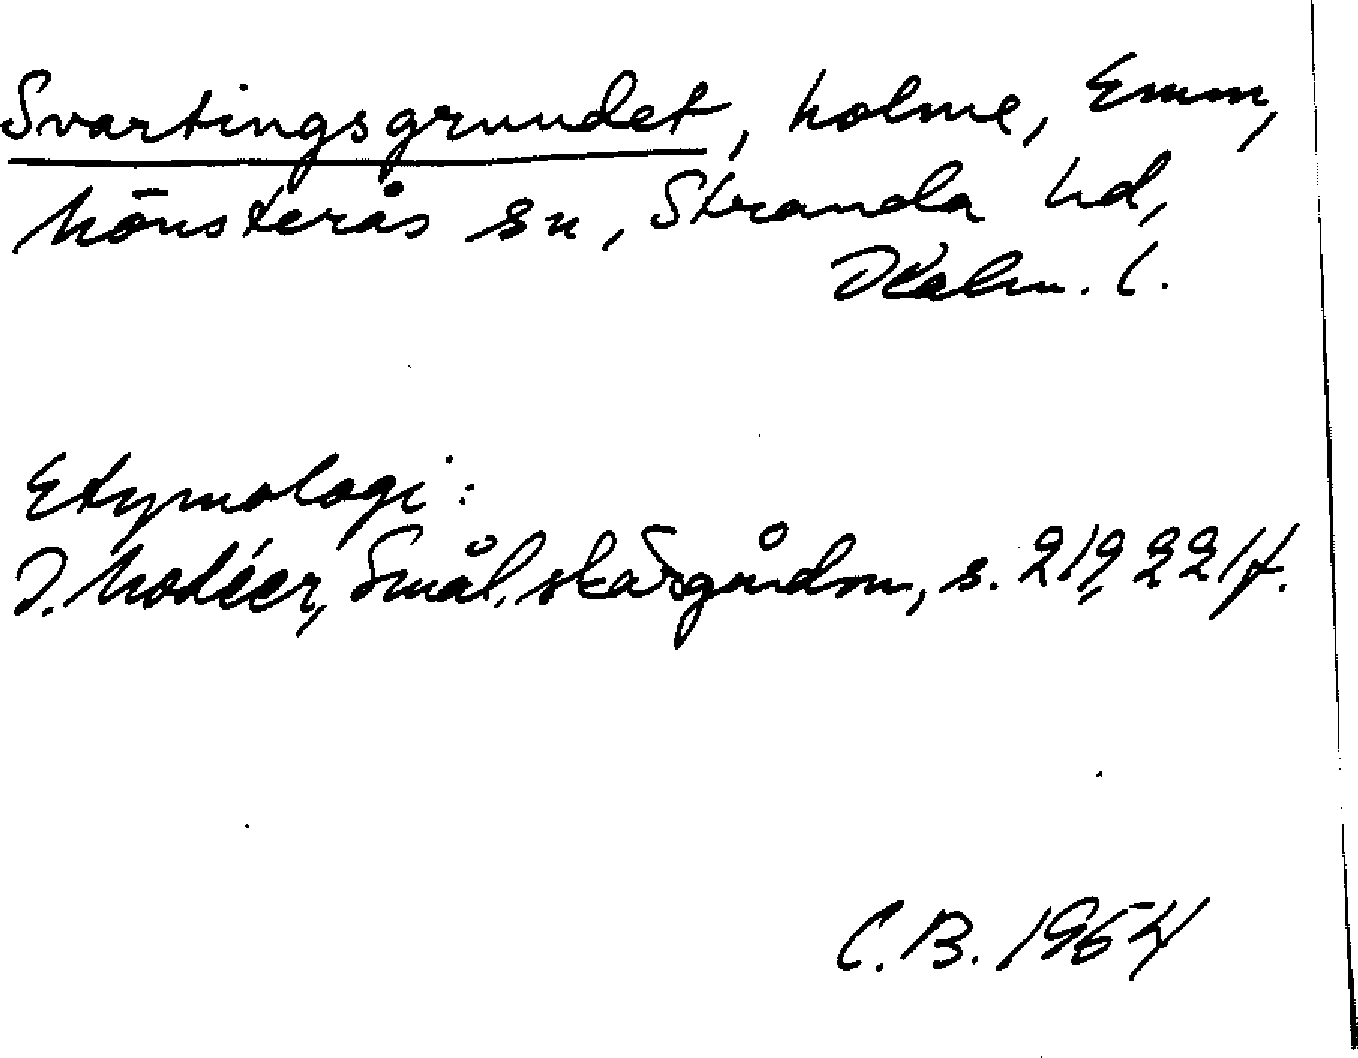 Svartingsgrundet, holme, Emm,
Mönsterås sn, Stranda hd,
Kalm. l.
Etymologi:
I. Modéer, Smål. skärgårdsn, s. 219, 221 f.
C.B. 1964